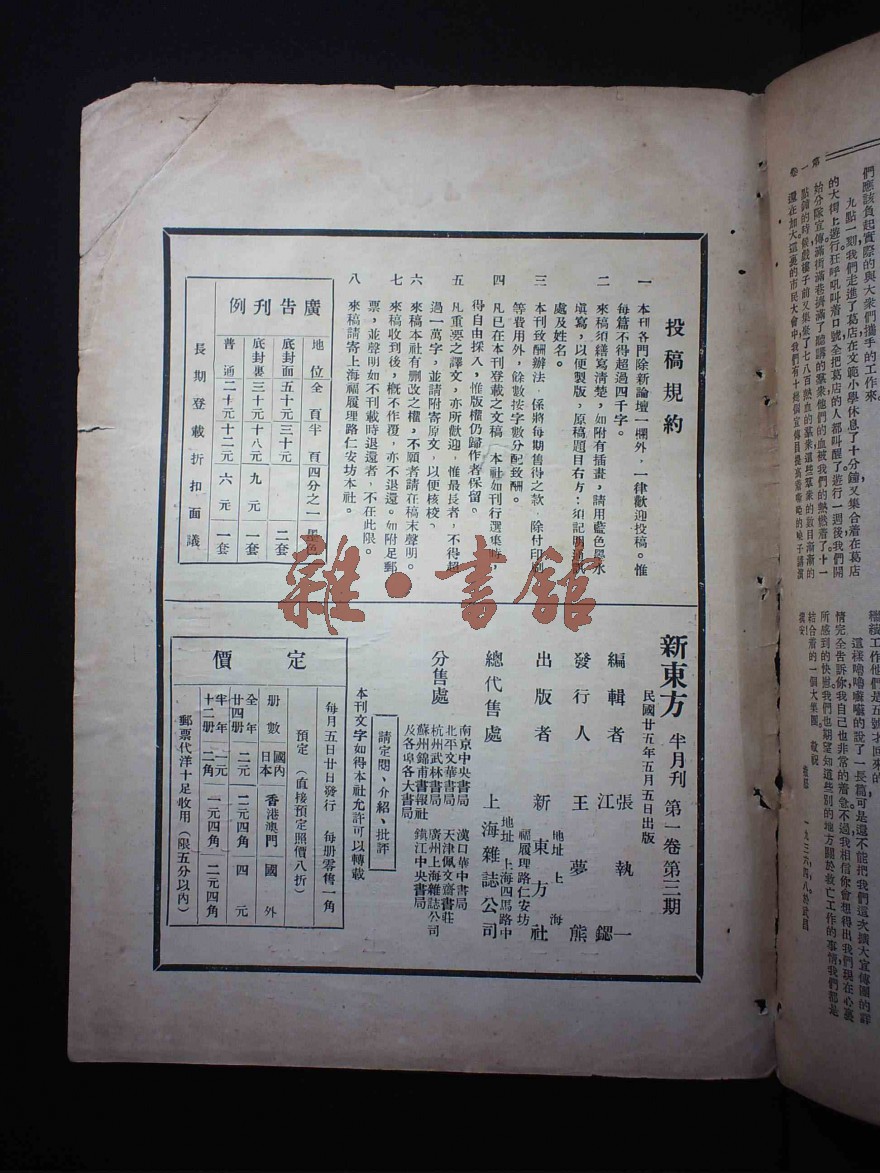 投稿規約
一　本刊各門除新論壇一欄外，一律歡迎投稿。惟
每篇不得超過四千字。
二　來稿須繕寫清楚，如附有插畫，請用藍色墨水
填寫，以便製版，原稿題目右方，須記明
處及姓名。
三　本刊致酬辦法，係將每期售得之款，除付印刷
等費用外，餘數按字數分配致酬。
四　凡已在本刊登載之文稿，本社如刊行選集時，
得自由採入，惟版權仍歸作者保留。
五　凡重要之譯文，亦所歡迎，惟最長者，不得超
過一萬字，並請附寄原文，以便核校。
六　來稿本社有删改之權，不願者請在稿末聲明。
七　來稿收到後，概不作覆，亦不退還。如附足郵
票，並聲明如不刊載時退還者，不在此限。
八　來稿請寄上海福履理路仁安坊本社。
廣告刊例
地位　全百　半百　四分之一　墨色
底封面　五十元　三十元　二套
底封裏　三十元　十八元　九元　一套
普通　二十元　十二元　六元　一套
長期登載折扣面議
新東方　半月刊　第一卷第三期
民國廿五年五月五日出版
編輯者　張執一　江鍶
發行人　王夢熊
出版者　新東方社
地址　上海福履理路仁安坊
總代售處　上海雜誌公司
地址　上海四馬路中
分售處
南京中央書局　漢口華中書局
北平文華書局　天津佩文齋書莊
杭州武林書局　廣州上海雜誌公司
蘇州錦甫書報社　鎮江中央書局
及各埠各大書局
請定閱、介紹、批評
本刊文字如得本社允許可以轉載
定價
每月五日廿日發行　每册零售一角
預定（直接預定照價八折）
册數　國內日本　香港澳門　國外
全年廿四册　二元　二元四角　四元
半年十二册　一元二角　一元四角　二元四角
郵票代洋十足收用（限五分以內）
雜·書館
第一卷
們應該負起實際的與大衆們攜手的工作來。
九點一刻，我們走進了葛店，在文範小學休息了十分鐘，又集合着在葛店
的大街上遊行，狂呼吼叫着口號，全把葛店的人都叫醒了。遊行一週後，我們開
始分隊宣傳，滿街滿巷擠滿了聽講的羣衆，他們的血被我們的熱燃着了。十一
點鐘的時候，戲樓子前又集聚了七八百熱血的羣衆，這些羣衆的數目漸漸的
還在加大。這裏的市民大會中，我們有十幾個宣傳員提高着嘶啞的嗓子講演
繼續工作，他們是五號才回來的。
這樣嚕嚕囌囌的說了一長篇，可是還不能把我們這次擴大宣傳團的詳
情完全告訴你，我自己也非常的着急，不過我相信你會想得出我們現在心裏
所感到的快慰。我們也期望知道些別的地方關於救亡工作的事情，我們都是
結合着的一個大集團。敬祝
一九三六，四，八，於武昌